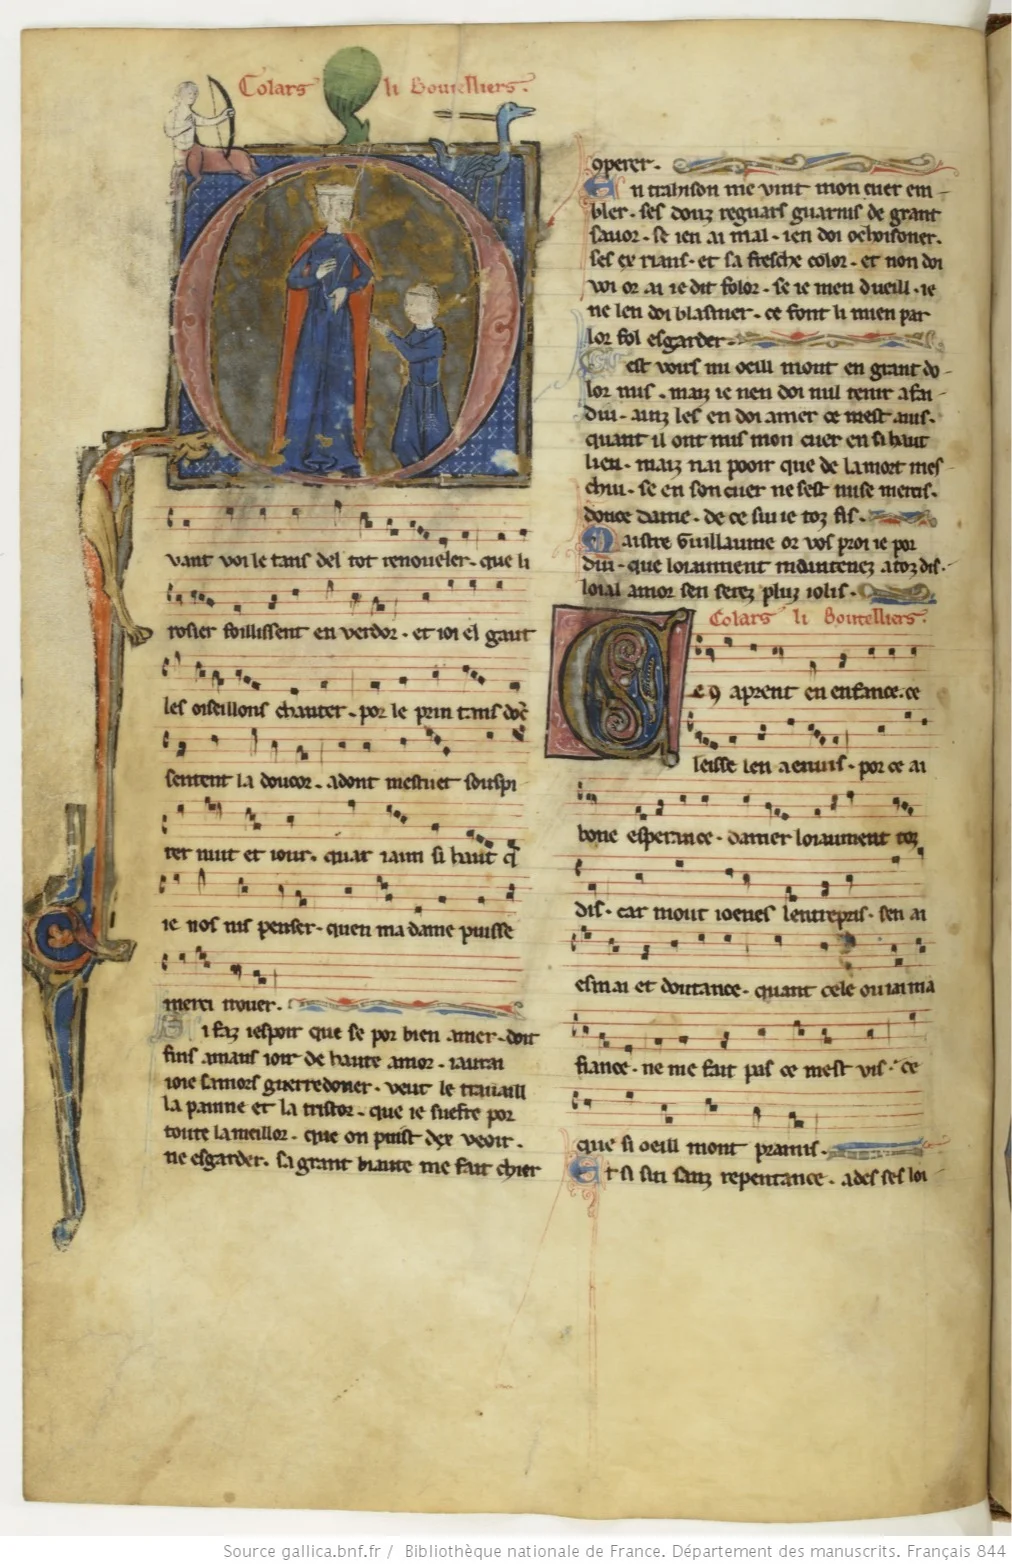 Colars li Bouteilliers.
vant voi le tans del tot renoueler. que li
rosier foillissent en verdor. et ioi el gaut
les oiseillons chanter. por le prin tans dōt
sentent la doucor. adont mestuet souspi
rer nuit et iour. quar iaim si haut q̄
ie nos nis penser. quen ma dame puisse
merci trouer.
Si faz iespoir que se por bien amer. doit
fins amans ioir de haute amor. iaurai
ioie samors guerredoner. veut le trauaill
la painne et la tristor. que ie suefre por
toute la meillor. que on puist dex veoir.
ne esgarder. sa grant biaute me fait chier
9perer.
En traison me vint mon cuer em
bler. ses douz reguars guarnis de grant
sauor. se ien ai mal. ien doi ochoisoner.
ses ex rians. et sa fresche color. et non doi
voi or ai ie dit folor. se ie men dueill. ie
ne len doi blasmer. ce font li mien par
lor fol esgarder.
est voirs mi oeill mont en grant do
lor mis. maiz ie nen doi nul tenir a fai
diu. ainz les en doi amer ce mest auis.
quant il ont mis mon cuer en si haut
lieu. maiz nai pooir que de la mort mes
chiu. se en son cuer ne sest mise mercis.
douce dame. de ce sui ie toz fis.
Maistre Guillaume or vos proi ie por
diu. que loiaument maintenez a toz dis.
loial amor sen serez pluz iolis.
Colars li Bouteilliers.
Ce 9 aprent en enfance. ce
leisse len a enuis. por ce ai
bone esperance. damer loiaument toz
dis. car mout ioenes lentrepris. sen ai
esmai et doutance. quant cele ou iai ma
fiance. ne me fait pas ce mest vis. ce
que si oeill mont pramis.
Et si sui sanz repentance. ades ses loi
Source gallica.bnf.fr / Bibliothèque nationale de France. Département des manuscrits. Français 844